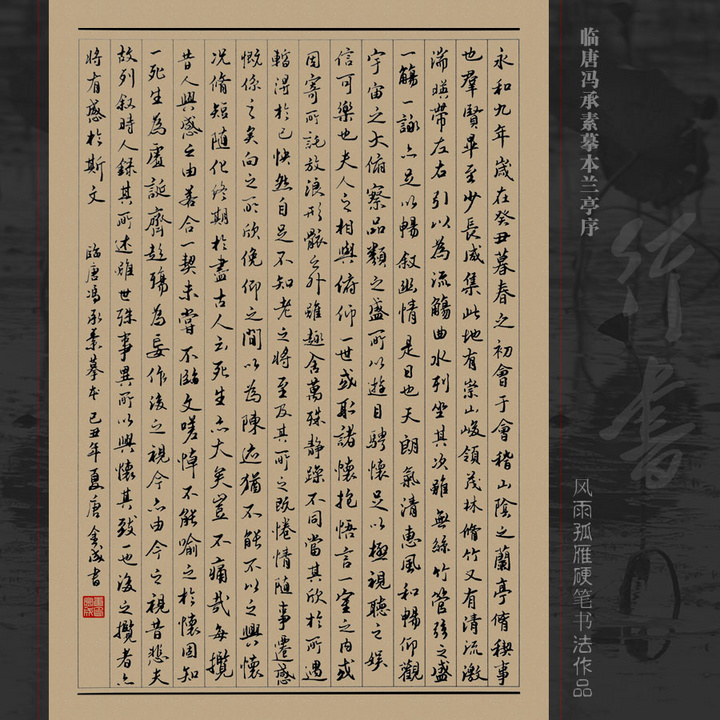 永和九年歲在癸丑暮春之初會于會稽山陰之蘭亭脩禊事
也羣賢畢至少長咸集此地有崇山峻領茂林脩竹又有清流激
湍暎帶左右引以為流觴曲水列坐其次雖無絲竹管弦之盛
一觴一詠亦足以暢叙幽情是日也天朗氣清惠風和暢仰觀
宇宙之大俯察品類之盛所以遊目騁懷足以極視聽之娛
信可樂也夫人之相與俯仰一世或取諸懷抱悟言一室之内或
因寄所託放浪形骸之外雖趣舍萬殊静躁不同當其欣於所遇
暫得於己快然自足不知老之將至及其所之既惓情随事遷感
慨係之矣向之所欣俛仰之間以為陳迹猶不能不以之興懷
况脩短随化終期於盡古人云死生亦大矣豈不痛哉每攬
昔人興感之由若合一契未嘗不臨文嗟悼不能喻之於懷固知
一死生為虛誕齊彭殤為妄作後之視今亦由今之視昔悲夫
故列叙時人錄其所述雖世殊事異所以興懷其致一也後之攬者亦
將有感於斯文 臨唐馮承素摹本 己丑年夏 唐金成書
临唐冯承素摹本兰亭序
行书
风雨孤雁硬笔书法作品